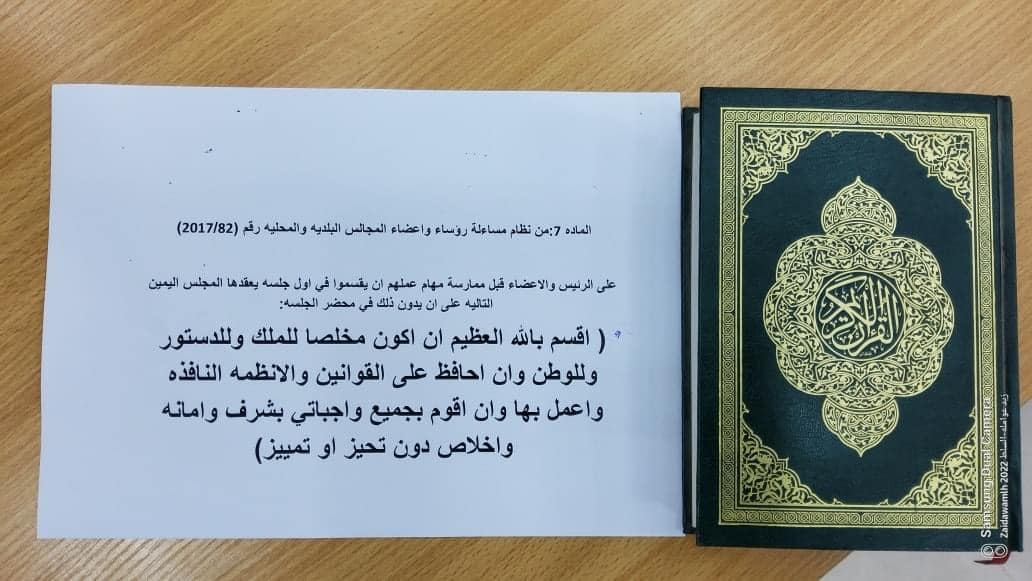 الماده 7:من نظام مساءلة رؤساء واعضاء المجالس البلديه والمحليه رقم (2017/82)
على الرئيس والاعضاء قبل ممارسة مهام عملهم ان يقسموا في اول جلسه يعقدها المجلس اليمين
التاليه على ان يدون ذلك في محضر الجلسه:
( اقسم بالله العظيم ان اكون مخلصا للملك وللدستور
وللوطن وان احافظ على القوانين والانظمه النافذه
واعمل بها وان اقوم بجميع واجباتي بشرف وامانه
واخلاص دون تحيز او تمييز)
القرآن الكريم
Samsung Dual Camera
Zaidawamlh 2022 زيد عوامله-السلط